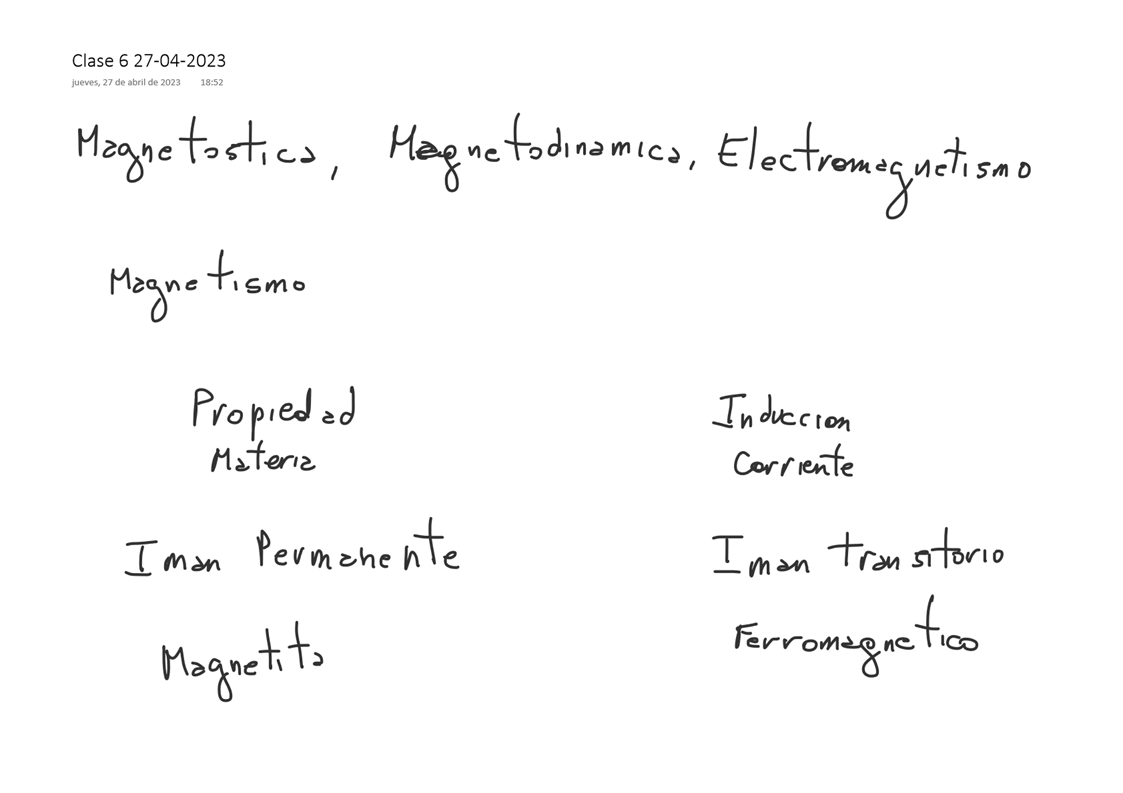 Clase 6 27-04-2023
jueves, 27 de abril de 2023 18:52
Magnetostica, Magnetodinamica, Electromagnetismo
Magnetismo
Propiedad Induccion
Materia Corriente
Iman Permanente Iman transitorio
Magnetita Ferromagnetico